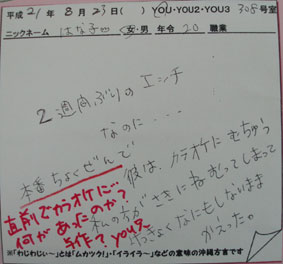 平成21年8月23日( ) YOU・YOU2・YOU3 308号室
ニックネーム はな子 女・男 年令20 職業
2週間ぶりのエッチ
なのに・・・・
本番ちょくぜんで
彼は、カラオケにむちゅう
私の方がさきにねむってしまって
けっきょくなにもしないまま
かえった。
直前でカラオケに…
何があったのか?
与作? you9~
※「わじわじぃ~」とは「ムカツク!」・「イライラ~」などの意味の沖縄方言です